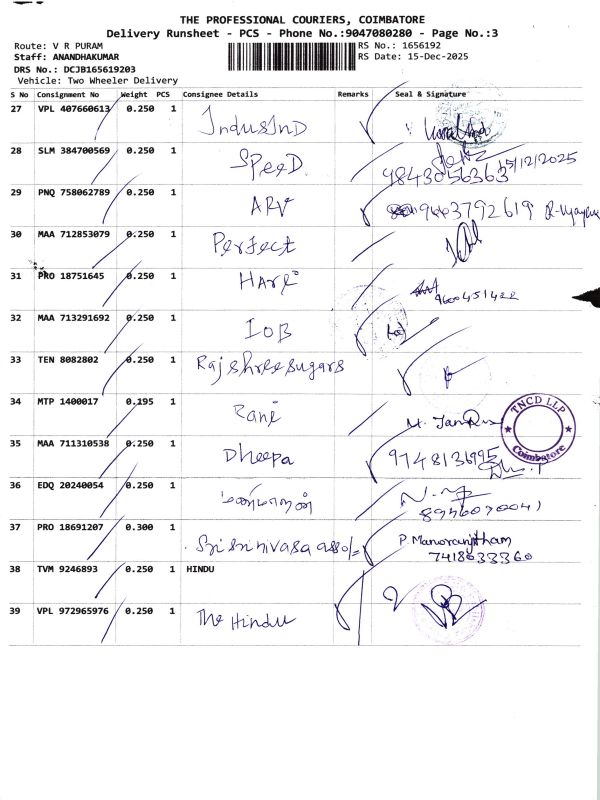 THE PROFESSIONAL COURIERS, COIMBATORE
Delivery Runsheet - PCS - Phone No.:9047080280 - Page No.:3
Route: V R PURAM
RS No.: 1656192
Staff: ANANDHAKUMAR
RS Date: 15-Dec-2025
DRS No.: DCJB165619203
Vehicle: Two Wheeler Delivery
S No Consignment No Weight PCS Consignee Details Remarks Seal & Signature
27 VPL 407660613 0.250 1 IndusInD
28 SLM 384700569 0.250 1 SPeeD 9843056363 15/12/2025
29 PNQ 758062789 0.250 1 ARV 9603792619
30 MAA 712853079 0.250 1 Perfect
31 PRO 18751645 0.250 1 Hari 9600451422
32 MAA 713291692 0.250 1 IOB
33 TEN 8082802 0.250 1 Rajshreesugars
34 MTP 1400017 0.195 1 Rani
TNCD LLP
Coimbatore
35 MAA 711310538 0.250 1 Dheepa 9748136995
36 EDQ 20240054 0.250 1
37 PRO 18691207 0.300 1 Srisrinivasa asso/= P. Manoranjitham
7418033360
38 TVM 9246893 0.250 1 HINDU
39 VPL 972965976 0.250 1 The Hindu